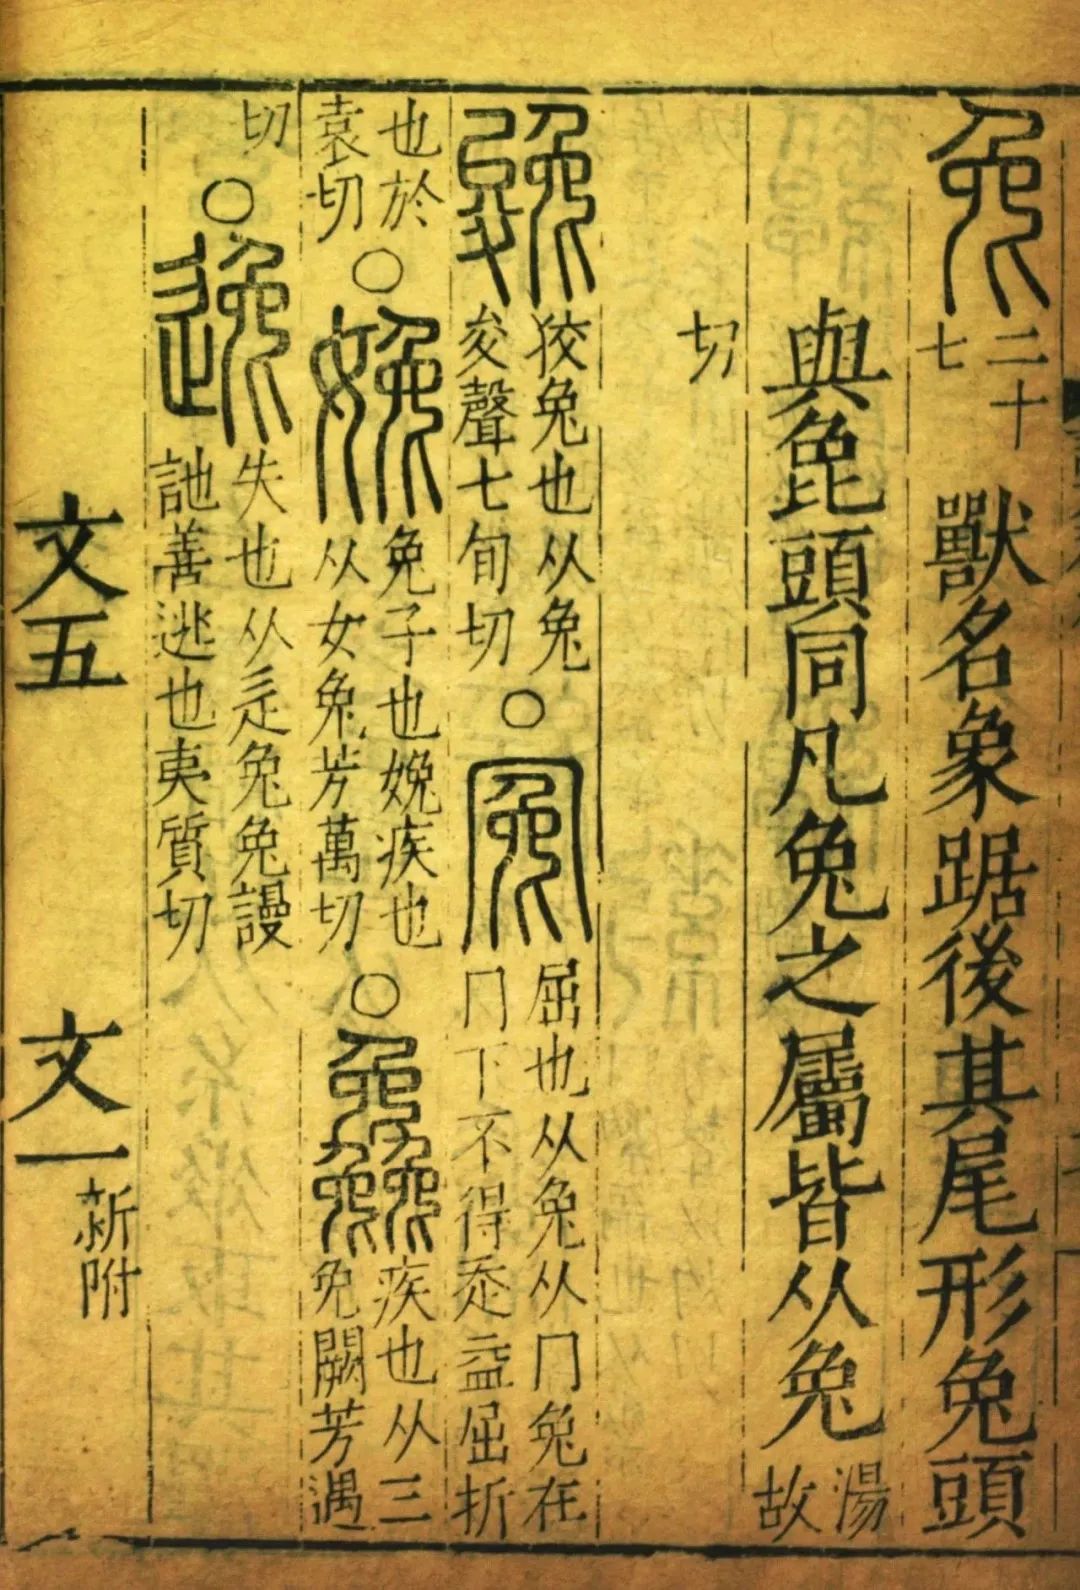 兔二十七獸名象踞後其尾形兔頭
與㲋頭同凡兔之屬皆从兔湯故
切
㕙狡兔也从兔夋聲七旬切○冤屈也从兔从冂兔在冂下不得走益屈折
也於袁切○婏兔子也婏疾也从女兔芳萬切○㲋疾也从三兔闕芳遇
切○逸失也从辵兔兔謾訑善逃也夷質切
文五 文一新附